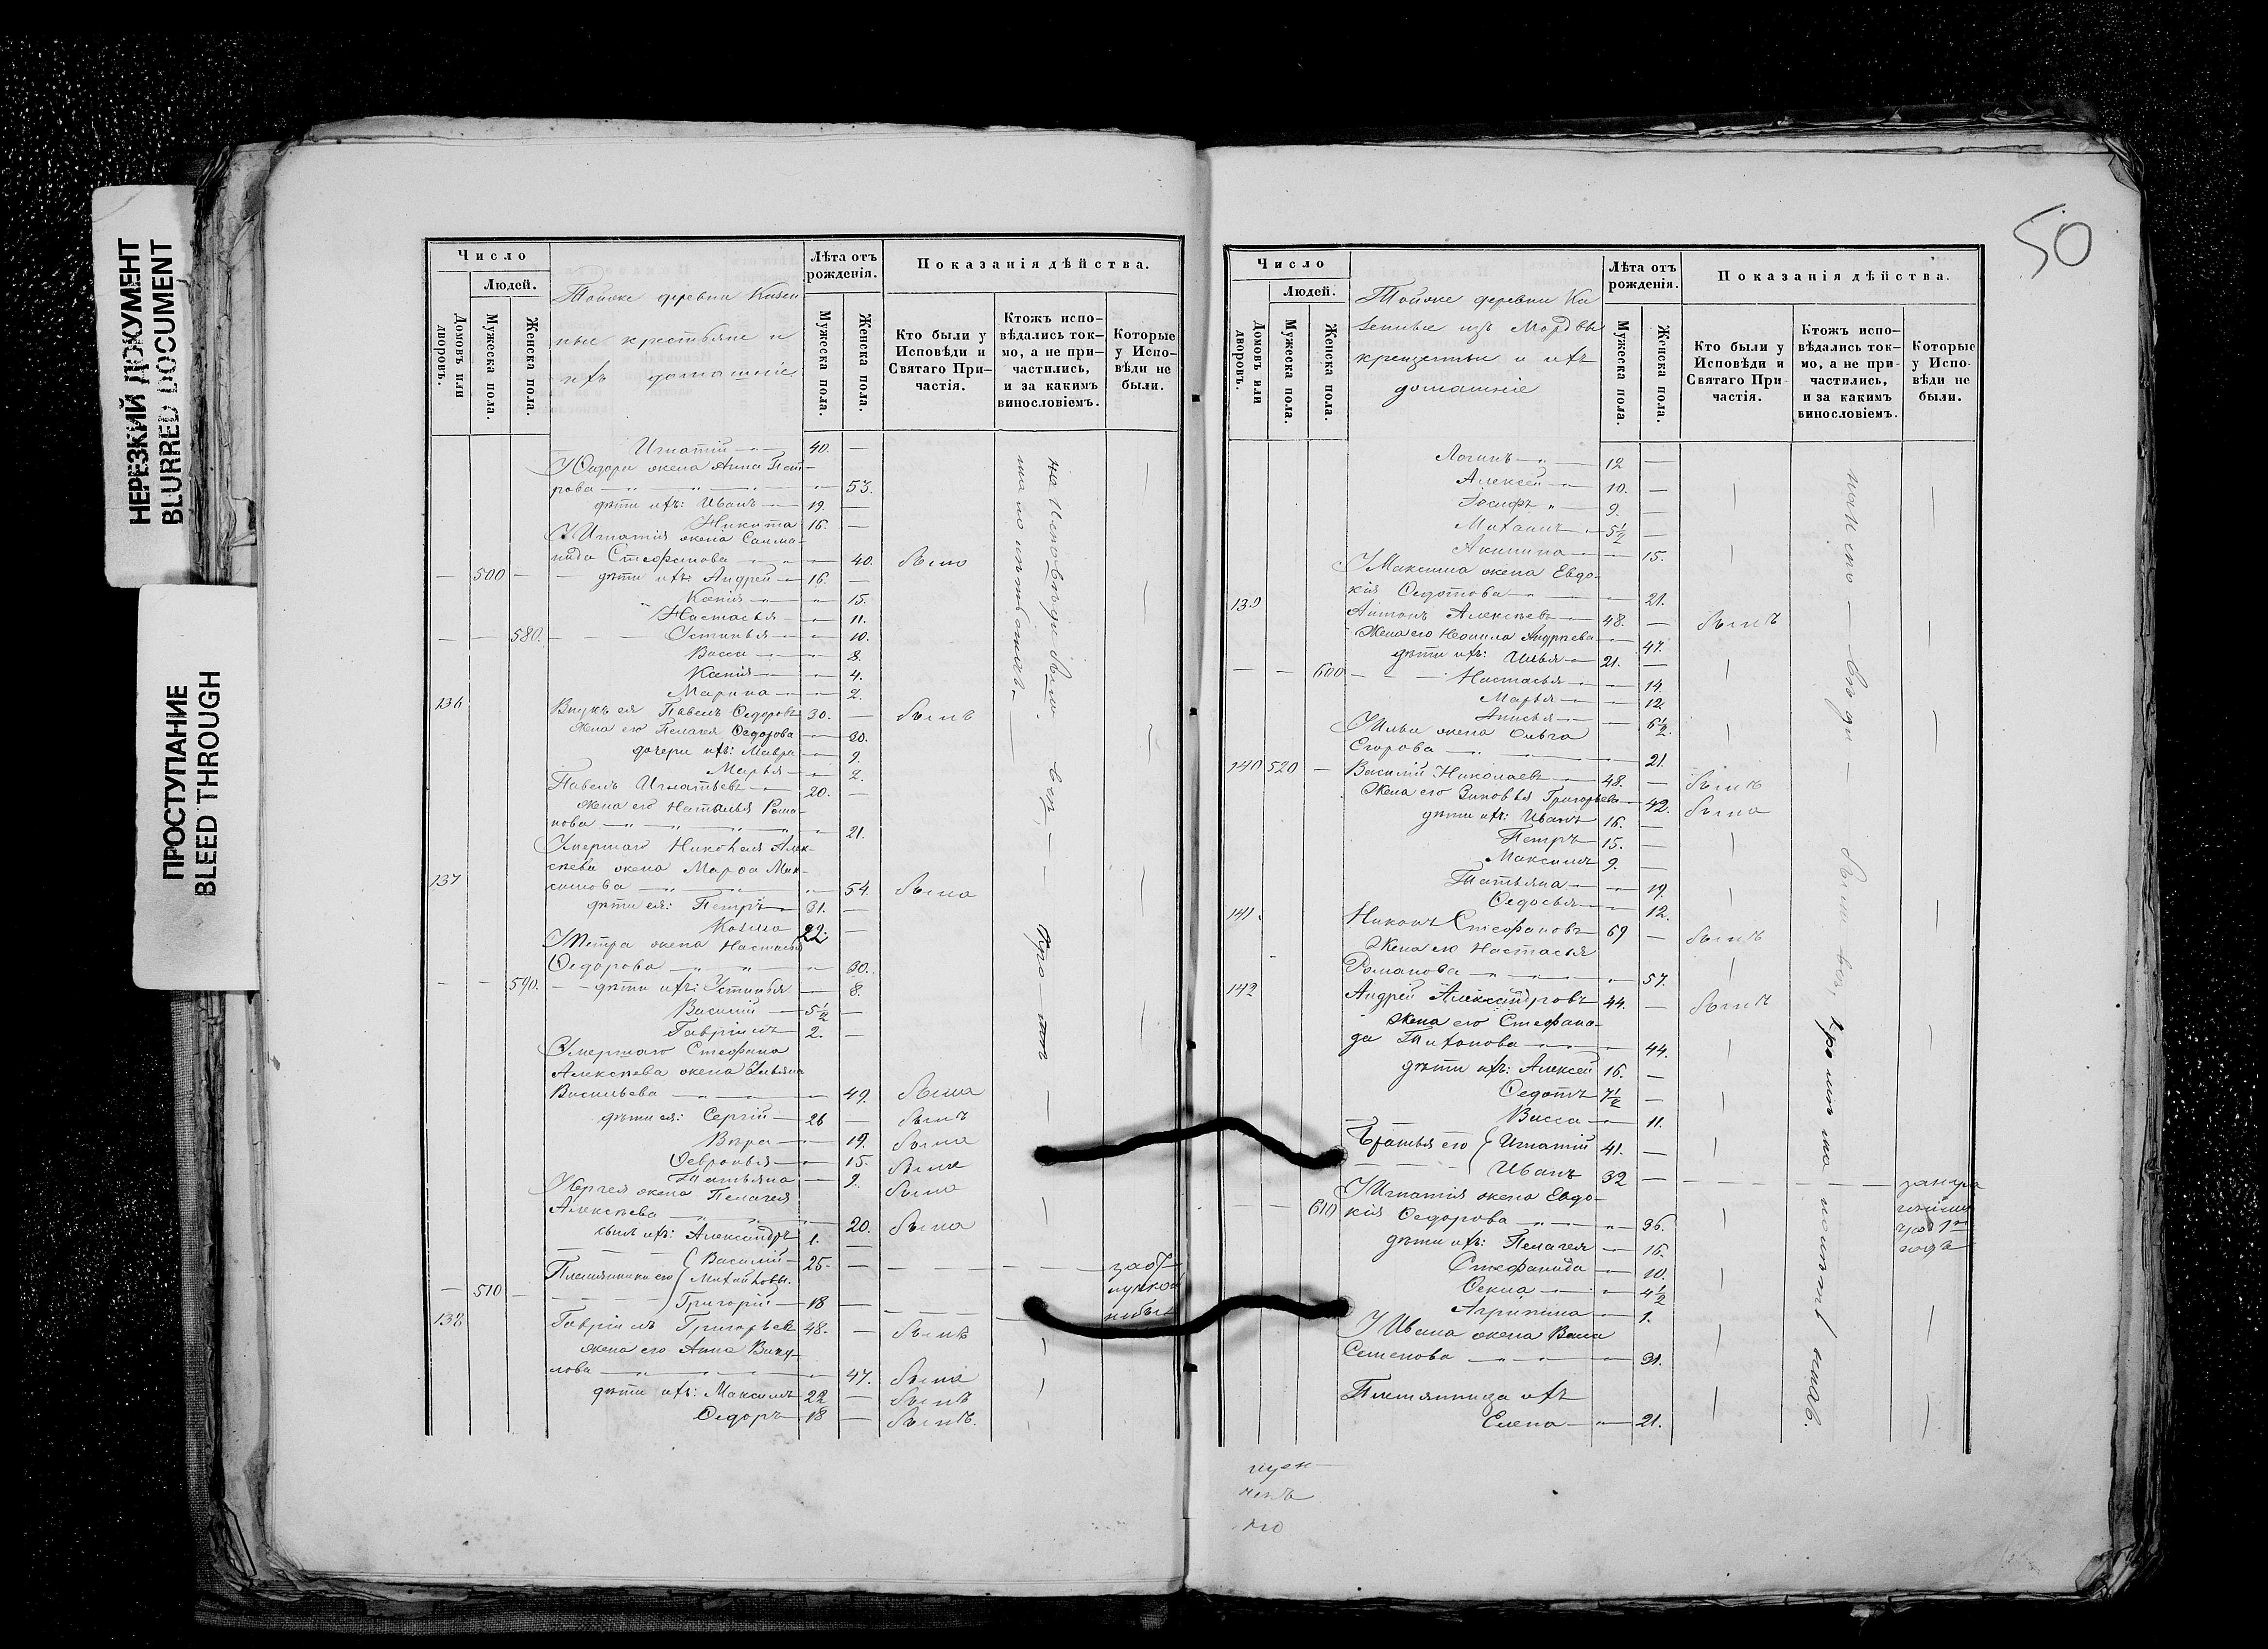 НЕРЕЗКИЙ ДОКУМЕНТ
BLURRED DOCUMENT
ПРОСТУПАНИЕ
BLEED THROUGH
Число
Людей.
Домовъ или дворовъ.
Мужеска пола.
Женска пола.
Тойже деревни Казен
ные крестьяне и
ихъ домашніе
Лѣта отъ рожденія.
Мужеска пола.
Женска пола.
Показанія дѣйства.
Кто были у Исповѣди и Святаго Причастія.
Ктожъ исповѣдались токмо, а не причастились, и за какимъ винословіемъ.
Которые у Исповѣди не были.
Игнатій 40. —
Ѳедора жена Анна Пет-
рова — 53.
дѣти ихъ: Иванъ 19. —
Никита 16. —
Игнатія жена
Стефанова — 40. было
— 500 — дѣти ихъ: Андрей 16. —
Ксенія — 15.
Настасья — 11.
— — 580. Устинья — 10.
Васса — 8.
Ксенія — 4.
Марина — 2.
136 Внукъ ея Павелъ Ѳедоровъ 30. — былъ
Жена его Пелагея Ѳедорова — 30.
дочери ихъ: Мавра — 9.
Марья — 2.
Павелъ Игнатьевъ 20. —
жена его Наталья Рома-
нова — 21.
Умершаго Алек-
сѣева жена Марѳа Мак-
137 симова — 54. была
дѣти ея: Петръ 31. —
Козьма 22. —
Петра жена Настасья
Ѳедорова — 30.
— — 590. — дѣти ихъ: Устинья — 8.
Василій 5½ —
Гавріилъ 2. —
Умершаго Стефана
Алексѣева жена Ульяна
Васильева — 49. была
дѣти ея: Сергій 26 — былъ
Вѣра — 19. была
Ѳевронья — 15. была
Татьяна — 9. была
Сергея жена Пелагея
Алексѣева — 20. была
сынъ ихъ: Александръ 1. —
Василій 25 —
Племянники его Михайловы.
— 510 — Григорій 18 —
138 Гавріилъ Григорьевъ 48. — былъ
жена его Анна Вику-
лова — 47. была
дѣти ихъ: Максимъ 22 — былъ
Ѳедоръ 18 — былъ.
на исповѣди было
50
Число
Людей.
Домовъ или дворовъ.
Мужеска пола.
Женска пола.
Тойже деревни Ка
зенные изъ Мордвы
крещеные и ихъ
домашніе
Лѣта отъ рожденія.
Мужеска пола.
Женска пола.
Показанія дѣйства.
Кто были у Исповѣди и Святаго Причастія.
Ктожъ исповѣдались токмо, а не причастились, и за какимъ винословіемъ.
Которые у Исповѣди не были.
Логинъ 12 —
Алексей 10. —
Іосифъ 9. —
Михаилъ 5½ —
Акилина — 15.
Максима жена Евдо-
кія Ѳедотова — 21.
139 Антонъ Алексѣевъ 48. — былъ
Жена его Неонила Андреева — 47.
дѣти ихъ: Илья 21. —
— — 600 — Настасья — 14.
Марья — 12
Анисья — 6½.
Ильи жена Ольга
Егорова — 21.
140 520 — Василій Николаевъ 48. — былъ
Жена его Зиновья Григорьева — 42. была
дѣти ихъ: Иванъ 16. —
Петръ 15. —
Максимъ 9. —
Татьяна — 19.
Ѳедосья — 12.
141. Никонъ Стефановъ 69 — былъ
Жена его Настасья
Романова — 57.
142 Андрей Александровъ 44. — былъ
Жена его Стефани-
да Тихонова — 44.
дѣти ихъ: Алексей 16. —
Ѳедотъ 7½ —
Васса — 11.
Братья его Игнатій 41. —
Иванъ 32 —
Игнатія жена Евдо-
— — 610 кія Ѳедорова — 36.
дѣти ихъ: Пелагея — 16.
Стефанида — 10.
Ѳекла — 4½
Агрипина — 1.
Ивана жена Васса
Семенова — 31.
Племянница ихъ
Елена — 21.